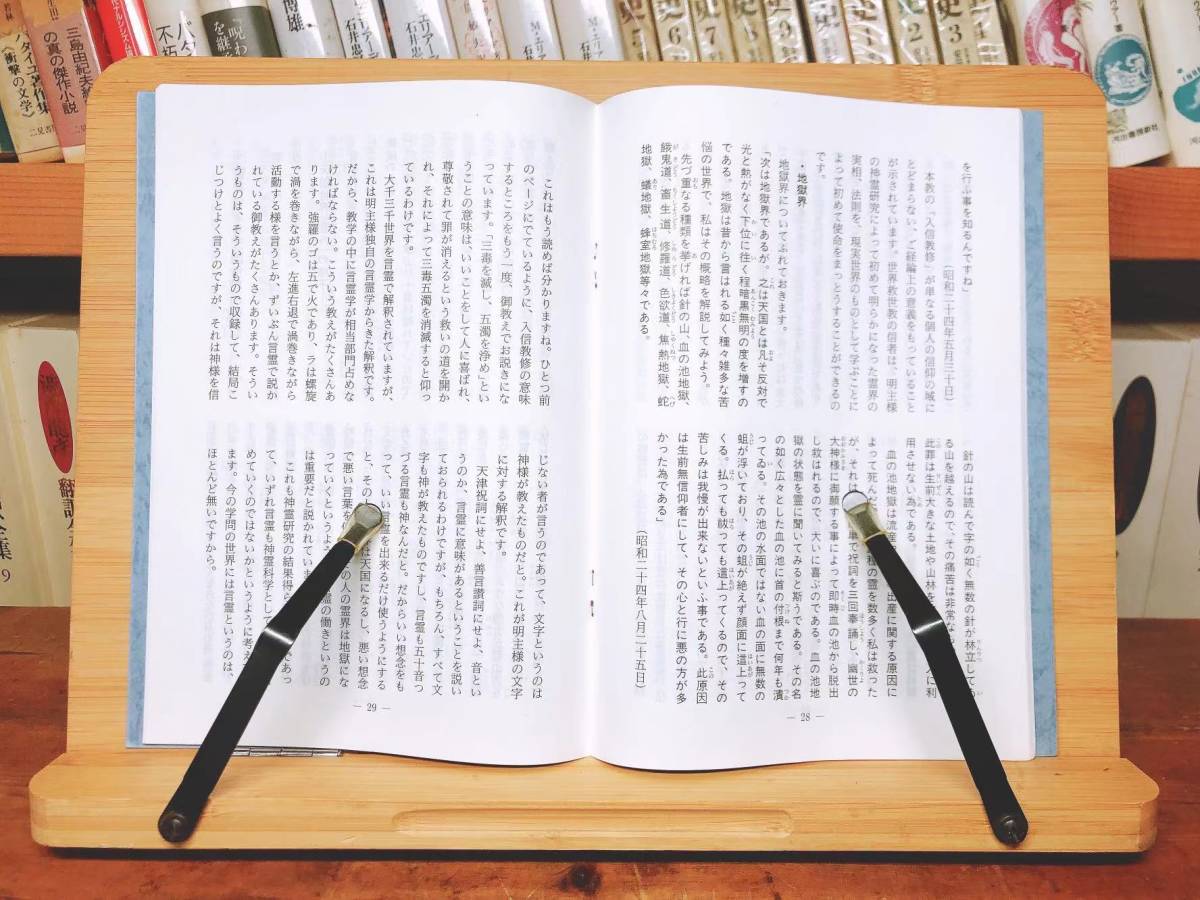 を行ふ事を知るんですね」
（昭和二十四年五月三十日）
本教の「入信教修」が単なる個人の信仰の域に
とどまらない、ご経論上の意義をもっていること
が示されています。世界救世教の信者は、明主様
の神霊研究によって初めて明らかになった霊界の
実相、法則を、現実世界のものとして学ぶことに
よって初めて使命をまっとうすることができるの
です。
・地獄界
地獄界についてふれておきます。
「次は地獄界であるが。之は天国とは凡そ反対で
光と熱がなく下位に往く程暗黒無明の度を増すの
である。地獄は昔から言はれる如く種々雑多な苦
悩の世界で、私はその概略を解説してみよう。
先づ重なる種類を挙げれば針の山、血の池地獄、
餓鬼道、畜生道、修羅道、色欲道、焦熱地獄、蛇
地獄、蟻地獄、蜂室地獄等々である。
針の山は読んで字の如く無数の針が林立してゐ
る山を越えるので、その痛苦は非常な
此罪は生前大きな土地や山林を 人に利
用させない為である。
血の池地獄は流産 出産に関する原因に
よって死んだ 種の霊を数多く私は救った
が、それは 単で祝詞を三回奉誦し、幽世の
大神様に御願する事によって即時血の池から脱出
し救はれるので、大いに喜ぶのである。血の池地
獄の状態を霊に聞いてみると斯うである。その名
の如く広々とした血の池に首の付根まで何年も漬
ってゐる。その池の水面ではない血の面に無数の
蛆が浮いており、その蛆が絶えず顔面に這上って
くる。払っても祓っても這上ってくるので、その
苦しみは我慢が出来ないといふ事である。此原因
は生前無信仰者にして、その心と行に悪の方が多
かった為である」
（昭和二十四年八月二十五日）
— 28 —
これはもう読めば分かりますね。ひとつ前
のページにでているように、入信教修の意味
するところをもう一度、御教えでお説きにな
っています。「三毒を滅し、五濁を浄め」とい
うことの意味は、いいことをして人に喜ばれ、
尊敬されて罪が消えるという救いの道を開か
れ、それによって三毒五濁を消滅すると仰っ
ているわけです。
大千三千世界を言霊で解釈されていますが、
これは明主様独自の言霊学からきた解釈です。
だから、教学の中に言霊学が相当部門占めな
ければならない。こういう教えがたくさんあ
ります。強羅のゴは五で火であり、ラは螺旋
で渦を巻きながら、左進右退で渦巻きながら
活動する様を言うとか、ずいぶん言霊で説か
れている御教えがたくさんあります。そうい
うものは、そういうもので収録して、結局こ
じつけとよく言うのですが、それは神様を信
じない者が言うのであって、文字というのは
神様が教えたものだと。これが明主様の文字
に対する解釈です。
天津祝詞にせよ、善言讃詞にせよ、音とい
うのか、言霊に意味があるということを説い
ておられるわけですが、もちろん、すべて文
字も神が教えたものですし、言霊も五十音っ
づる言霊も神なんだと。だからいい想念をも
って、いい言霊を出来るだけ使うようにする
と、その は天国になるし、悪い想念
で悪い言葉を の人の霊界は地獄にな
っていくというよう 霊の働きというの
は重要だと説かれていま
これも神霊研究の結果得ら であっ
て、いずれ言霊も神霊科学として
めていくのではないかというように考え
ます。今の学問の世界には言霊というのは、
ほとんど無いですから。
— 29 —
三島由紀夫
の真の傑作小説
バタイユ著作集
《衝撃の文学》
二見書房
不朽
「呪わ
を継
博雄
エリアーデ
石井忠
M・エリ
史
8
7
6
5
9
1
2
3
河出書房新社
全集
9